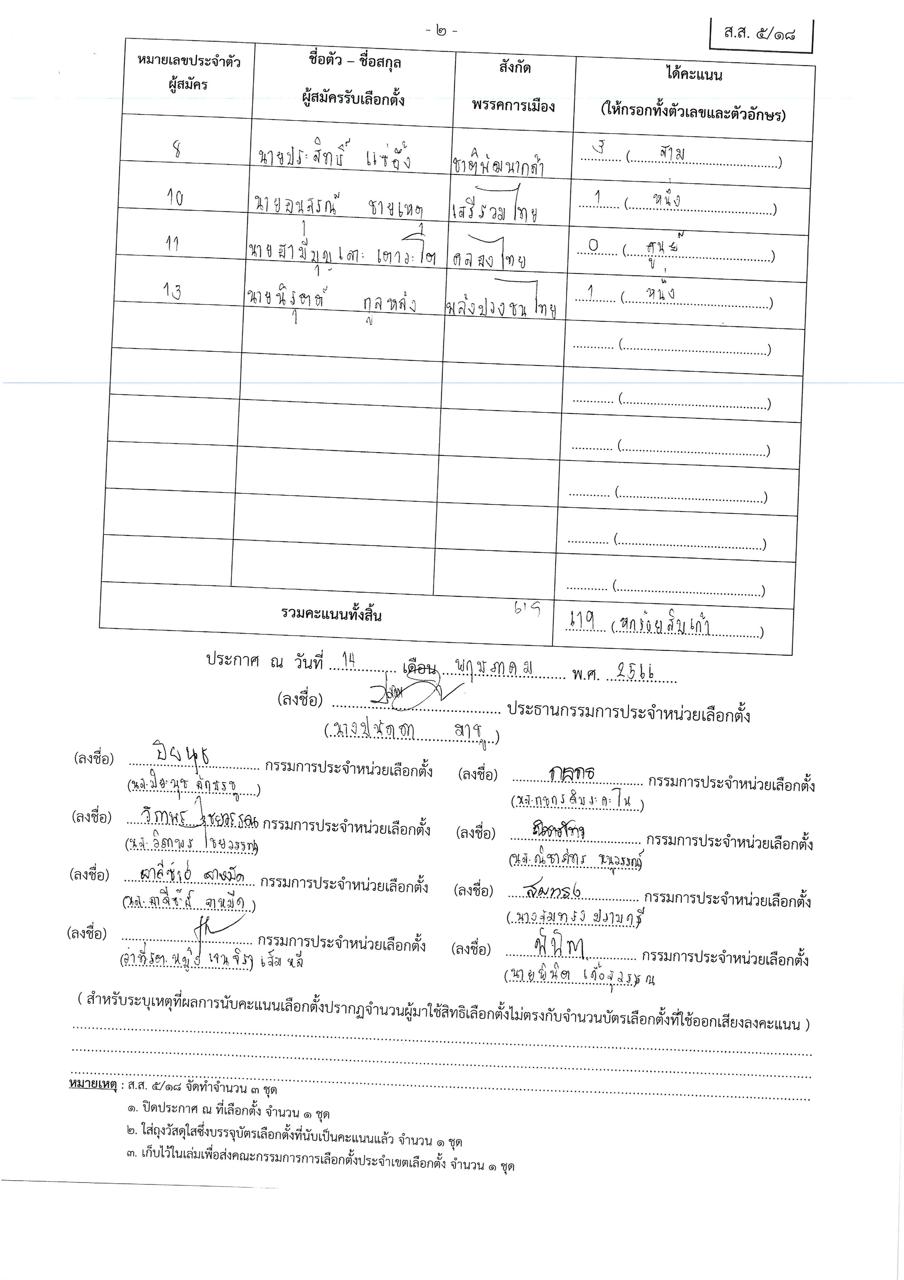 - ๒ -
ส.ส. ๕/๑๘
หมายเลขประจำตัว ผู้สมัคร ชื่อตัว – ชื่อสกุล ผู้สมัครรับเลือกตั้ง สังกัด พรรคการเมือง ได้คะแนน (ให้กรอกทั้งตัวเลขและตัวอักษร)
8 นายประสิทธิ์ แซ่อึ้ง ชาติพัฒนากล้า 3 (สาม)
10 นายอนุสรณ์ ชายเหตุ เสรีรวมไทย 1 (หนึ่ง)
11 คลองไทย 0 (ศูนย์)
13 พลังปวงชนไทย 1 (หนึ่ง)
............ (....................................)
............ (....................................)
............ (....................................)
............ (....................................)
............ (....................................)
............ (....................................)
รวมคะแนนทั้งสิ้น 619 619 (หกร้อยสิบเก้า)
ประกาศ ณ วันที่ 14 เดือน พฤษภาคม พ.ศ. 2566
(ลงชื่อ) ประธานกรรมการประจำหน่วยเลือกตั้ง
(ลงชื่อ) ปิยนุช กรรมการประจำหน่วยเลือกตั้ง (ลงชื่อ) กรรมการประจำหน่วยเลือกตั้ง
(ลงชื่อ) กรรมการประจำหน่วยเลือกตั้ง (ลงชื่อ) กรรมการประจำหน่วยเลือกตั้ง
(ลงชื่อ) กรรมการประจำหน่วยเลือกตั้ง (ลงชื่อ) สมทรง กรรมการประจำหน่วยเลือกตั้ง
(ลงชื่อ) กรรมการประจำหน่วยเลือกตั้ง (ลงชื่อ) กรรมการประจำหน่วยเลือกตั้ง
( สำหรับระบุเหตุที่ผลการนับคะแนนเลือกตั้งปรากฏจำนวนผู้มาใช้สิทธิเลือกตั้งไม่ตรงกับจำนวนบัตรเลือกตั้งที่ใช้ออกเสียงลงคะแนน )
หมายเหตุ : ส.ส. ๕/๑๘ จัดทำจำนวน ๓ ชุด
๑. ปิดประกาศ ณ ที่เลือกตั้ง จำนวน ๑ ชุด
๒. ใส่ถุงวัสดุใสซึ่งบรรจุบัตรเลือกตั้งที่นับเป็นคะแนนแล้ว จำนวน ๑ ชุด
๓. เก็บไว้ในเล่มเพื่อส่งคณะกรรมการการเลือกตั้งประจำเขตเลือกตั้ง จำนวน ๑ ชุด